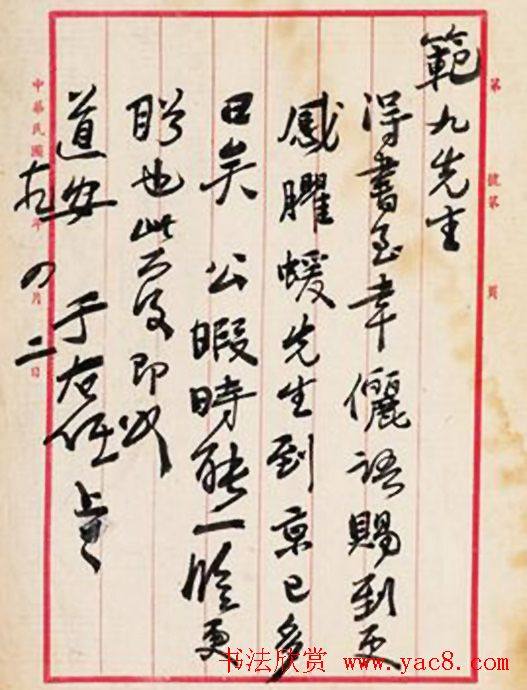 第 號第 頁
範九先生
得書至幸儷語賜到更
感臞蝯先生到京已多
日矣 公暇時能一臨更
盼也此復即頌
道安 于右任 上
中華民國 年 四月二日
书法欣赏 www.yac8.com